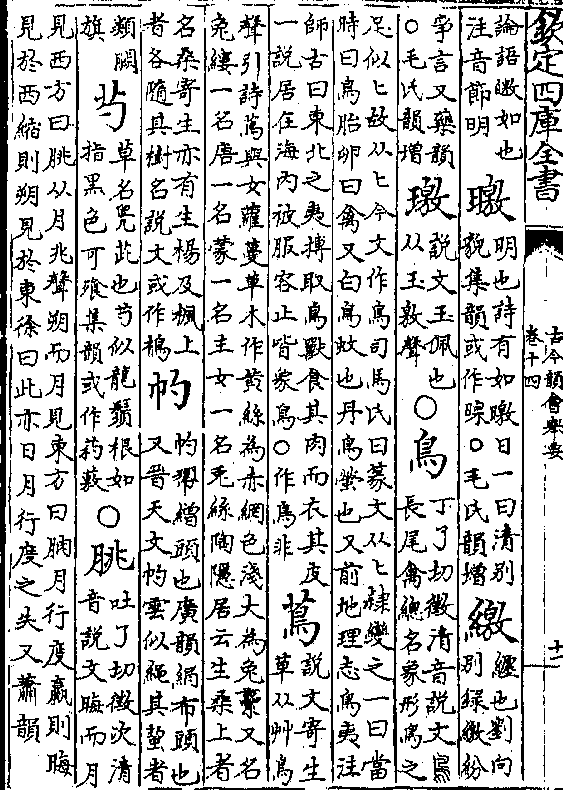 欽定四庫全書
古今韻會舉要
卷十四
十二
論語皦如也
注音節明
曒
明也詩有如曒日一曰清別
貌集韻或作㬭○毛氏韻增
繳
纒也劉向
別録繳紛
爭言又藥韻
○毛氏韻增
璬
說文玉佩也
从玉敫聲
○鳥
丁了切徵清音說文鳥
長尾禽緫名象形鳥之
足似匕故从匕今文作鳥司馬氏曰篆文从匕隸變之一曰當
時曰鳥胎卵曰禽又白鳥蚊也丹鳥螢也又前地理志鳥夷注
師古曰東北之夷搏取鳥獸食其肉而衣其皮
一說居在海内被服容止皆象鳥○作鳥非
蔦
說文寄生
草从艸鳥
聲引詩蔦與女蘿蔓草木作黄絲為赤網色淺大為兔纍又名
兔縷一名唐一名蒙一名王女一名兎絲陶隱居云生桑上者
名桑寄生亦有生楊及楓上
者各隨其樹名說文或作樢
𢁕
𢁕繒頭也廣韻絹布頭也
又晉天文𢁕雲似繩其蟄者
類闕
旗
芍
草名鳬茈也芍似龍鬚根如
指黒色可飱集韻或作葯藃
○朓
吐了切徵次清
音說文晦而月
見西方曰朓从月兆聲朔而月見東方曰朒月行度贏則晦
見於西縮則朔見於東徐曰此亦日月行度之失又蕭韻